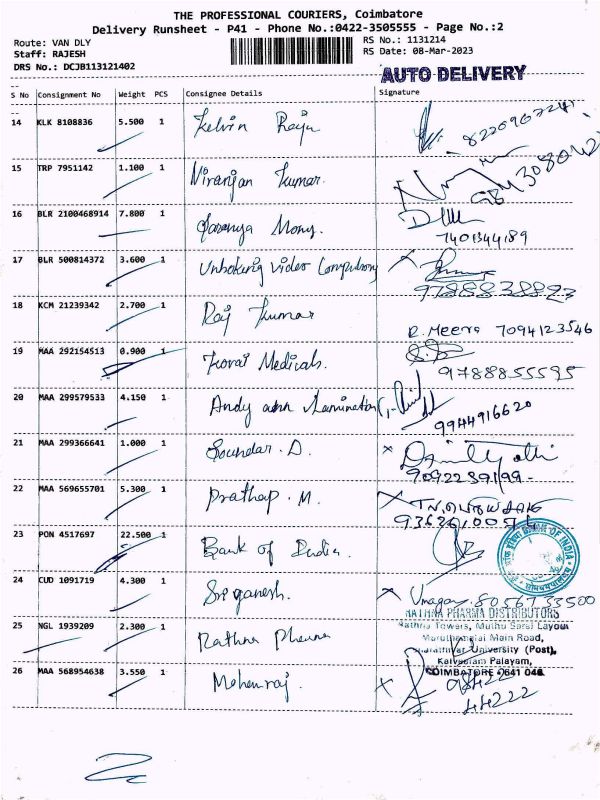 THE PROFESSIONAL COURIERS, Coimbatore
Delivery Runsheet - P41 - Phone No.:0422-3505555 - Page No.:2
Route: VAN DLY
Staff: RAJESH
DRS No.: DCJB113121402
RS No.: 1131214
RS Date: 08-Mar-2023
AUTO DELIVERY
S No Consignment No Weight PCS Consignee Details Signature
14 KLK 8108836 5.500 1 Kelvin Raju
15 TRP 7951142 1.100 1 Niranjan Kumar.
16 BLR 2100468914 7.800 1 Mony.
7401344189
17 BLR 500814372 3.600 1 Unboxing Video Compulsory
9788838823
18 KCM 21239342 2.700 1 Raj Kumar
R. Meera 7094123546
19 MAA 292154513 0.900 1 Kovai Medicals.
9788855595
20 MAA 299579533 4.150 1 Andy
9944916620
21 MAA 299366641 1.000 1 Soundar. D.
9092239199-
22 MAA 569655701 5.300 1 Prathap. M.
23 PON 4517697 22.500 1 Bank of India.
BANK OF INDIA
24 CUD 1091719 4.300 1 Sriganesh.
8056755500
RATHNA PHARMA DISTRIBUTORS
25 NGL 1939209 2.300 1 Rathna Pharma
Rathna Towers, Muthu Sarsi Layout
Maruthamalai Main Road,
Bharathiyar University (Post),
Kalveeram Palayam,
COIMBATORE - 641 046.
26 MAA 568954638 3.550 1 Mohanraj.
98422
44222